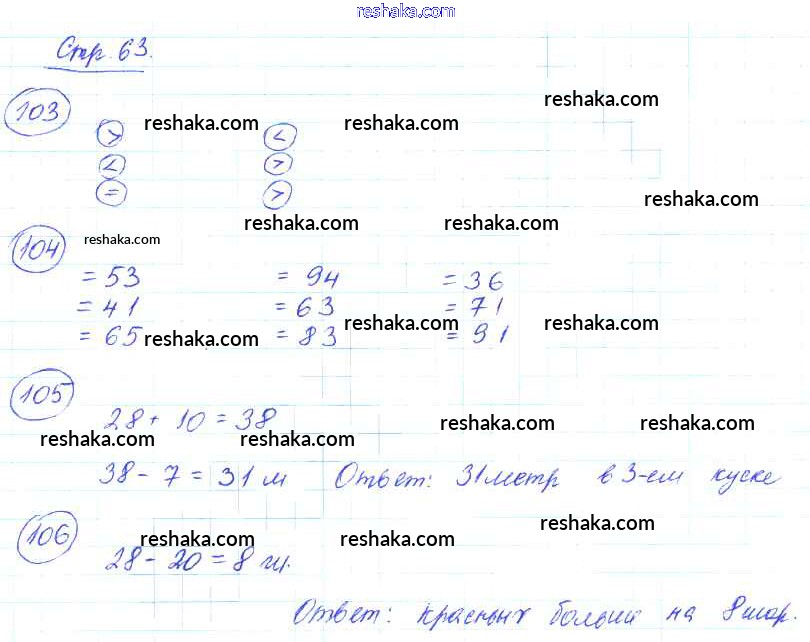 reshaka.com
Стр. 63.
reshaka.com
103
> reshaka.com < reshaka.com
< >
= >
reshaka.com
reshaka.com reshaka.com
104 reshaka.com
= 53 = 94 = 36
= 41 = 63 = 71
reshaka.com reshaka.com
= 65 reshaka.com = 83 = 91
105
28 + 10 = 38 reshaka.com reshaka.com
reshaka.com reshaka.com
38 - 7 = 31 м Ответ: 31 метр в 3-ем куске
reshaka.com
106 reshaka.com reshaka.com
28 - 20 = 8 ш.
Ответ: красных больше на 8 шар.